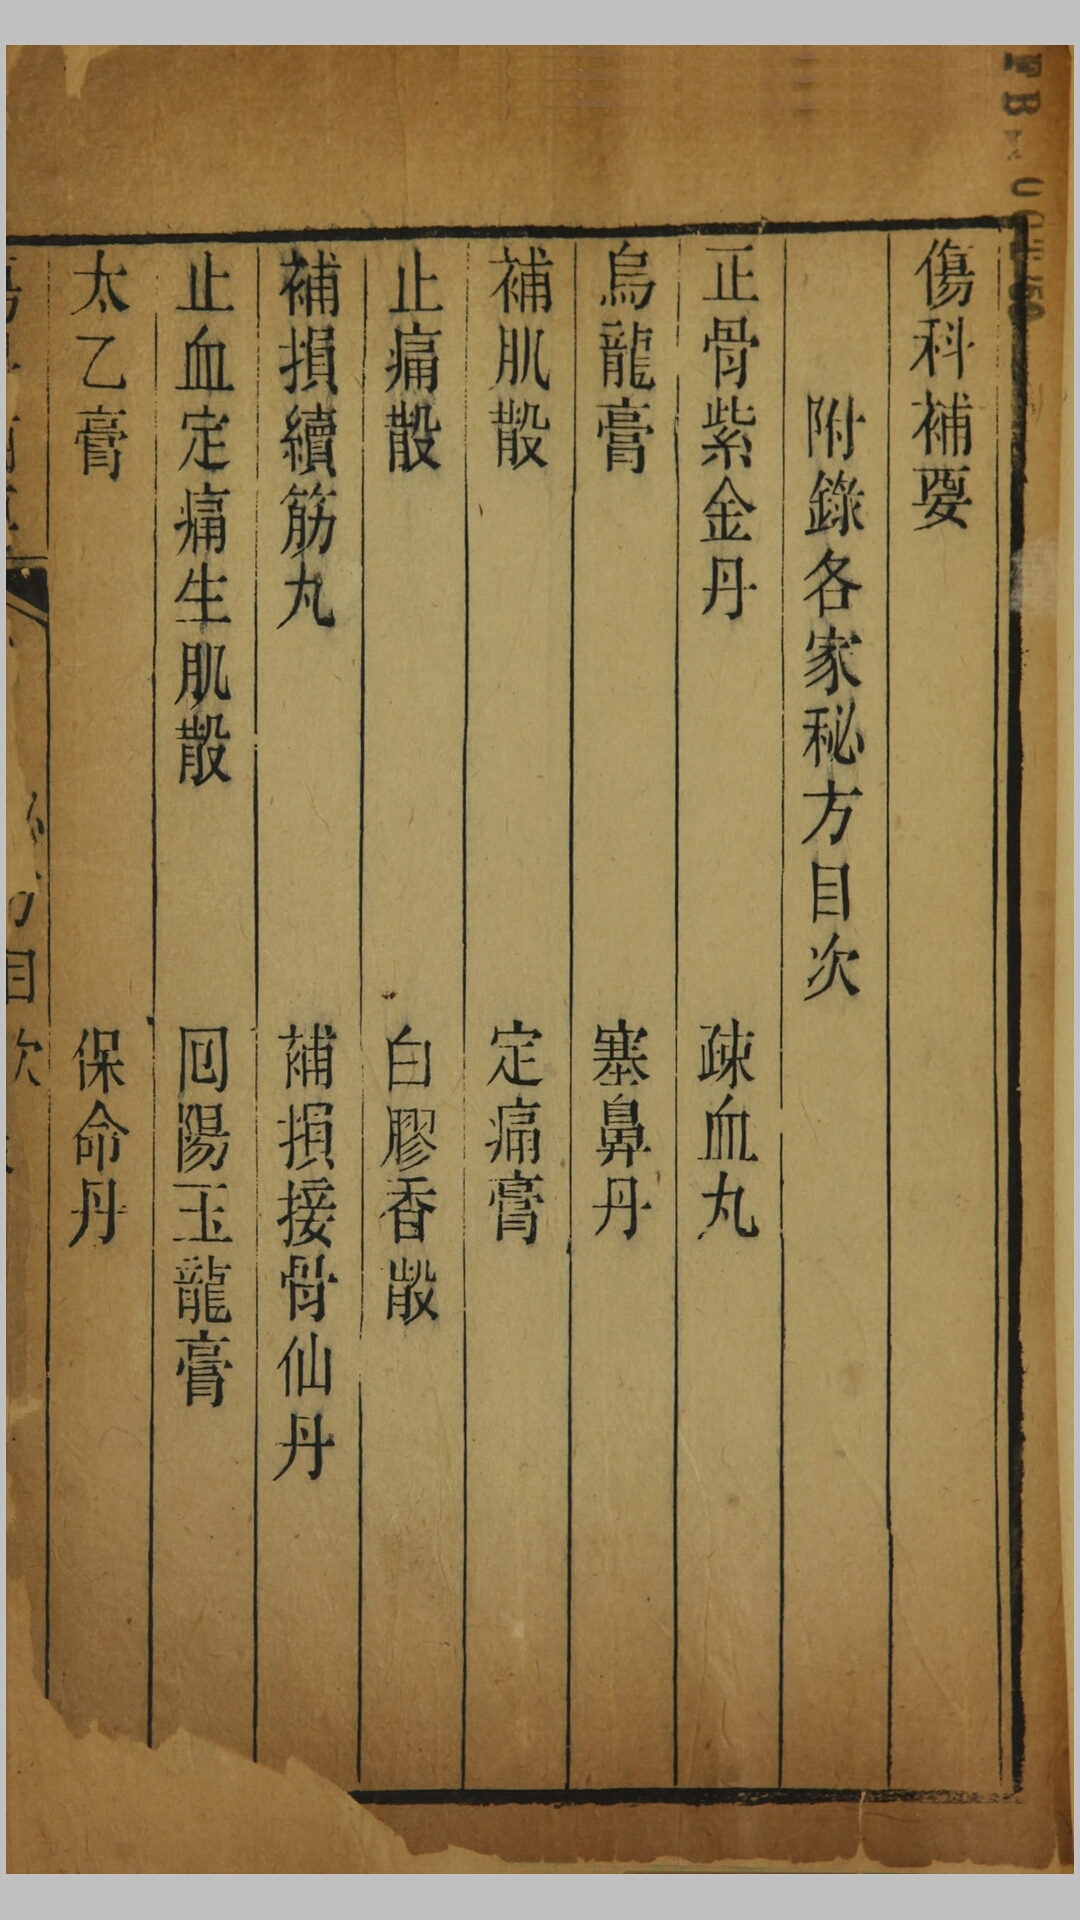 傷科補要
附錄各家秘方目次
正骨紫金丹　疎血丸
烏龍膏　塞鼻丹
補肌散　定痛膏
止痛散　白膠香散
補損續筋丸　補損接骨仙丹
止血定痛生肌散　囘陽玉龍膏
太乙膏　保命丹
目次